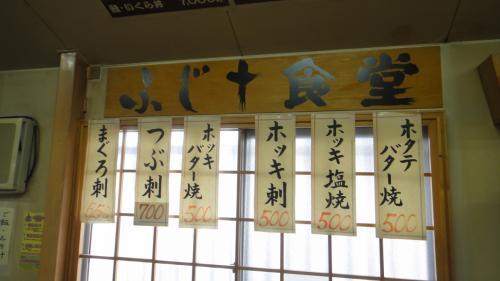 鮭・いくら丼 7,000
ふじ十食堂
ホタテ
バター焼
500
ホッキ塩焼
500
ホッキ刺
500
ホッキ
バター焼
500
つぶ刺
700
まぐろ刺
650
ご飯・みそ汁